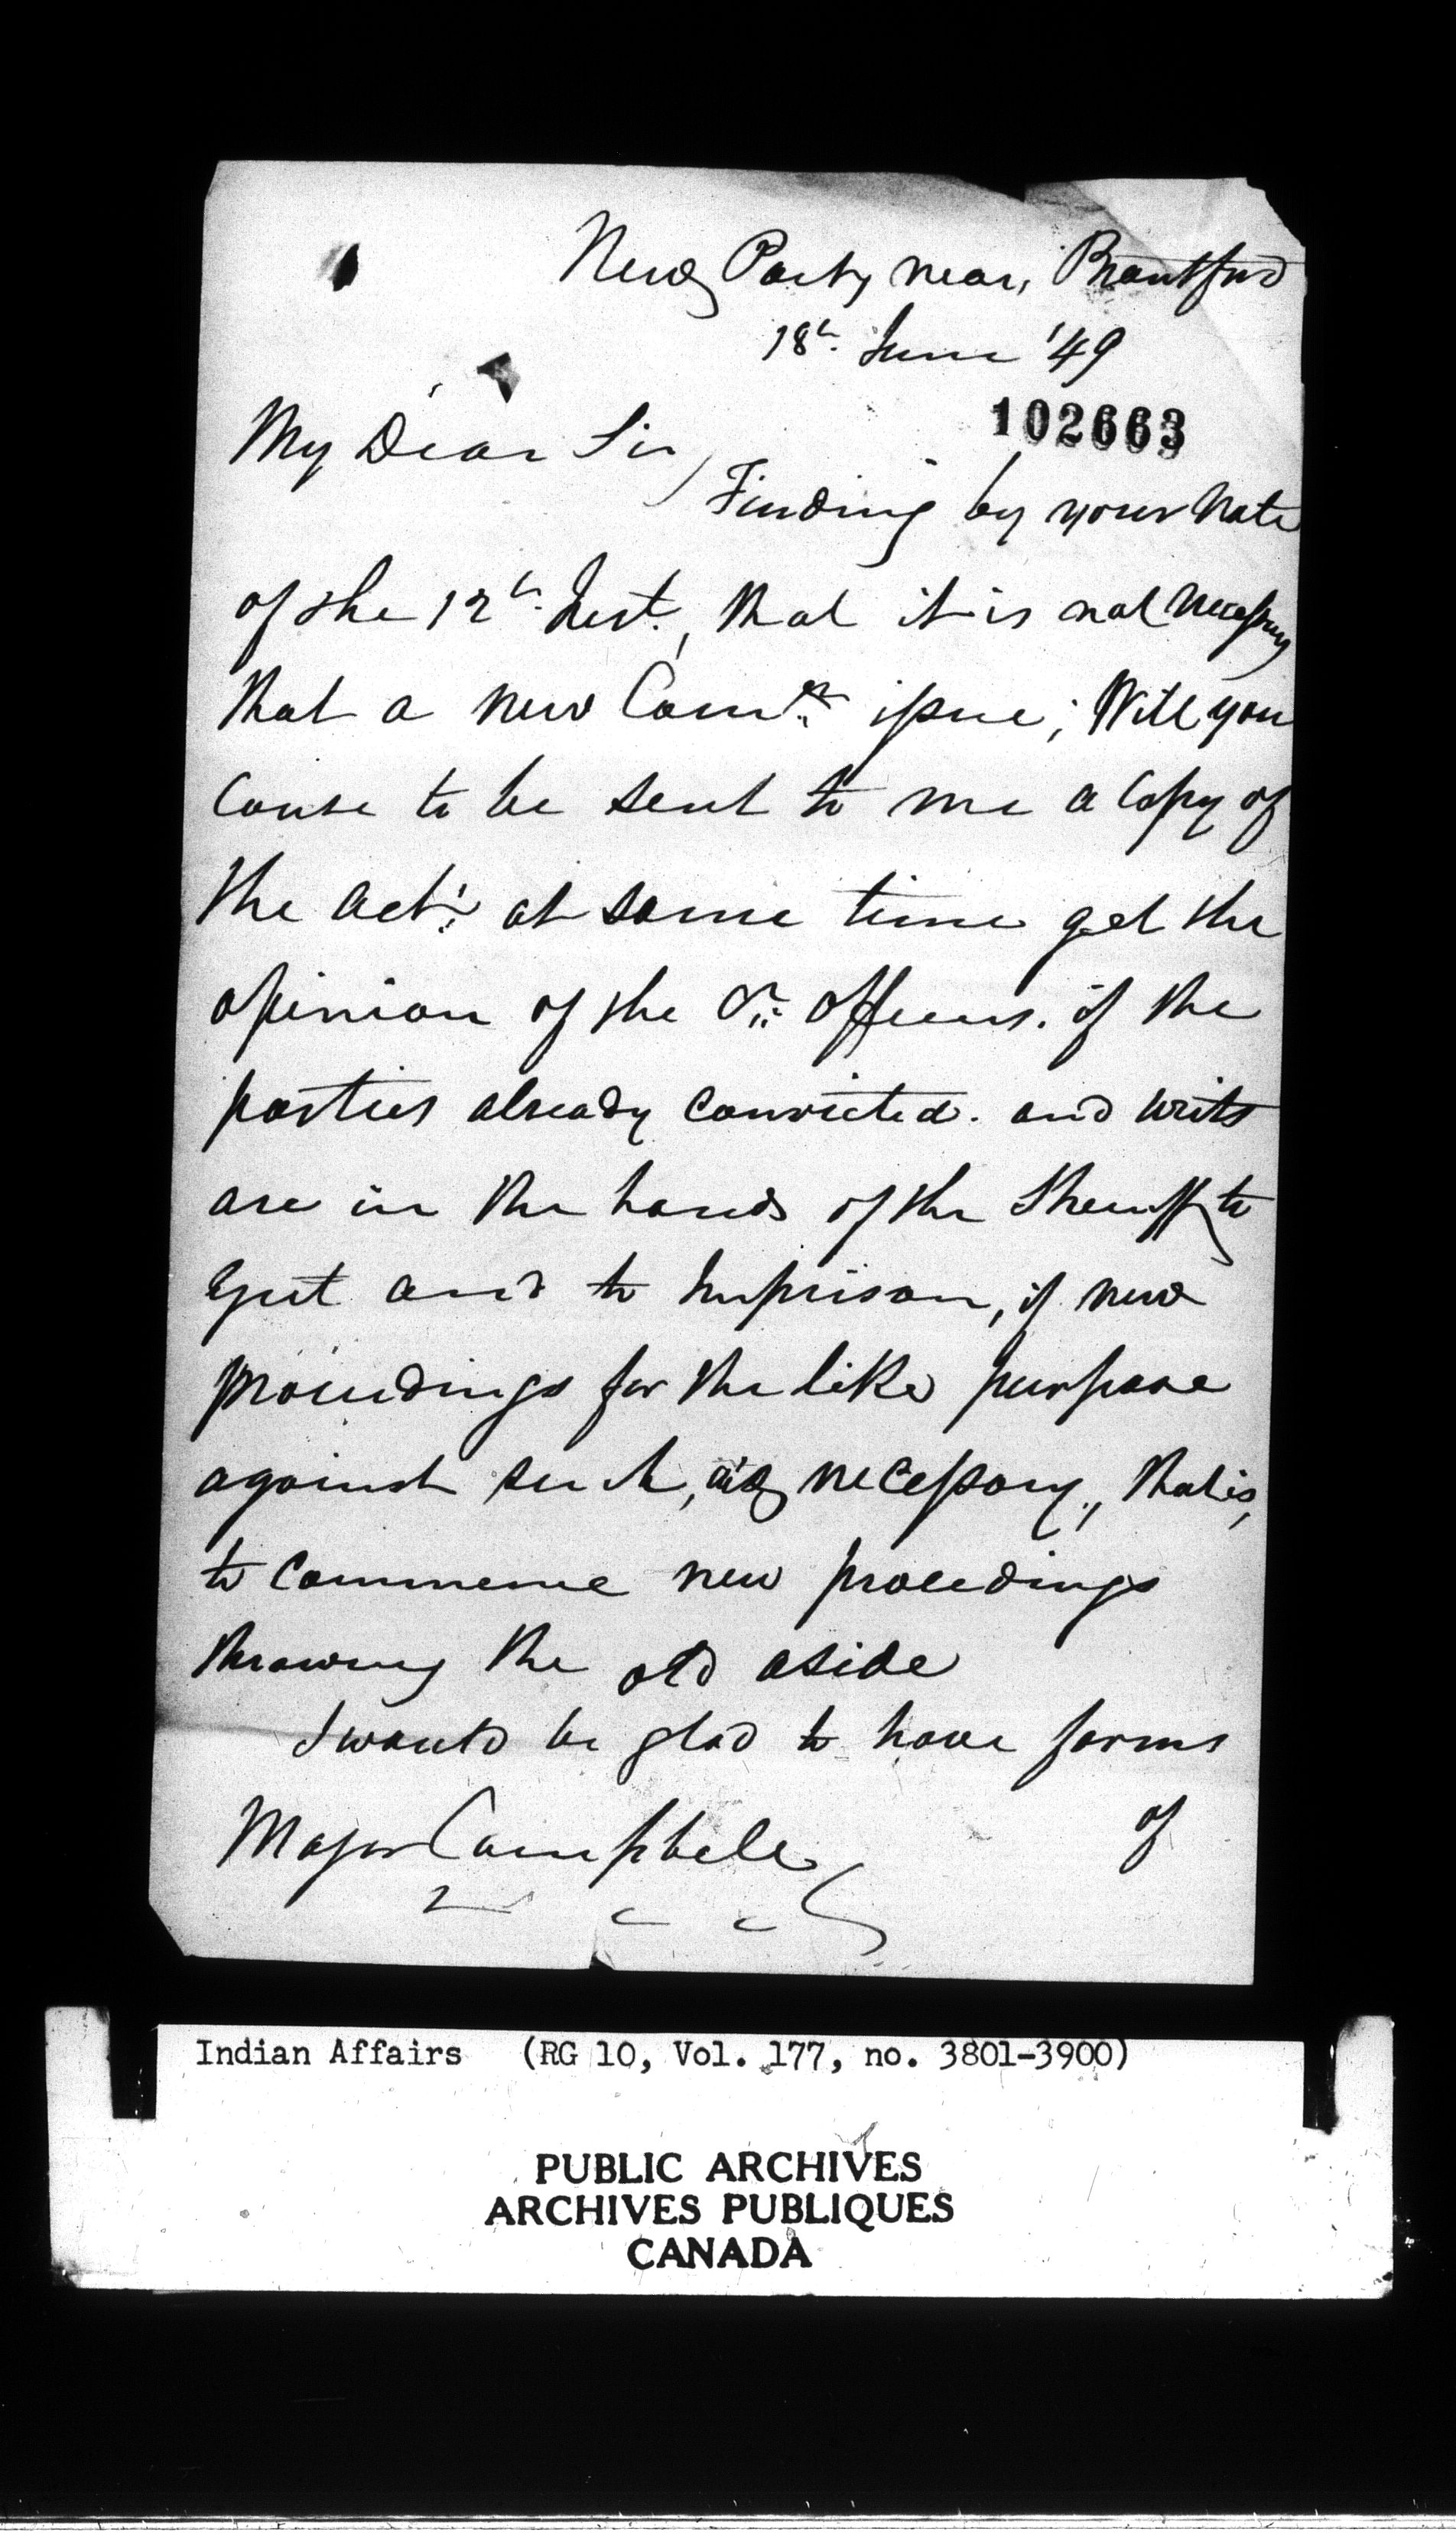 New Port, near, Brantford
18th. June '49
102663
My Dear Sir,
Finding by your Note
of the 12th. Inst., that it is not necessary
that a new Comn. issue; Will you
cause to be sent to me a Copy of
the act: at same time get the
opinion of the Cr. Officers. if the
parties already convicted. and writs
are in the hands of the Sheriff to
Eject and to Imprison, if new
proceedings for the like purpose
against such, is necessary, that is,
to commence new proceedings
throwing the old aside
I would be glad to have forms
Major Campbell
of
Indian Affairs (RG 10, Vol. 177, no. 3801-3900)
PUBLIC ARCHIVES
ARCHIVES PUBLIQUES
CANADA